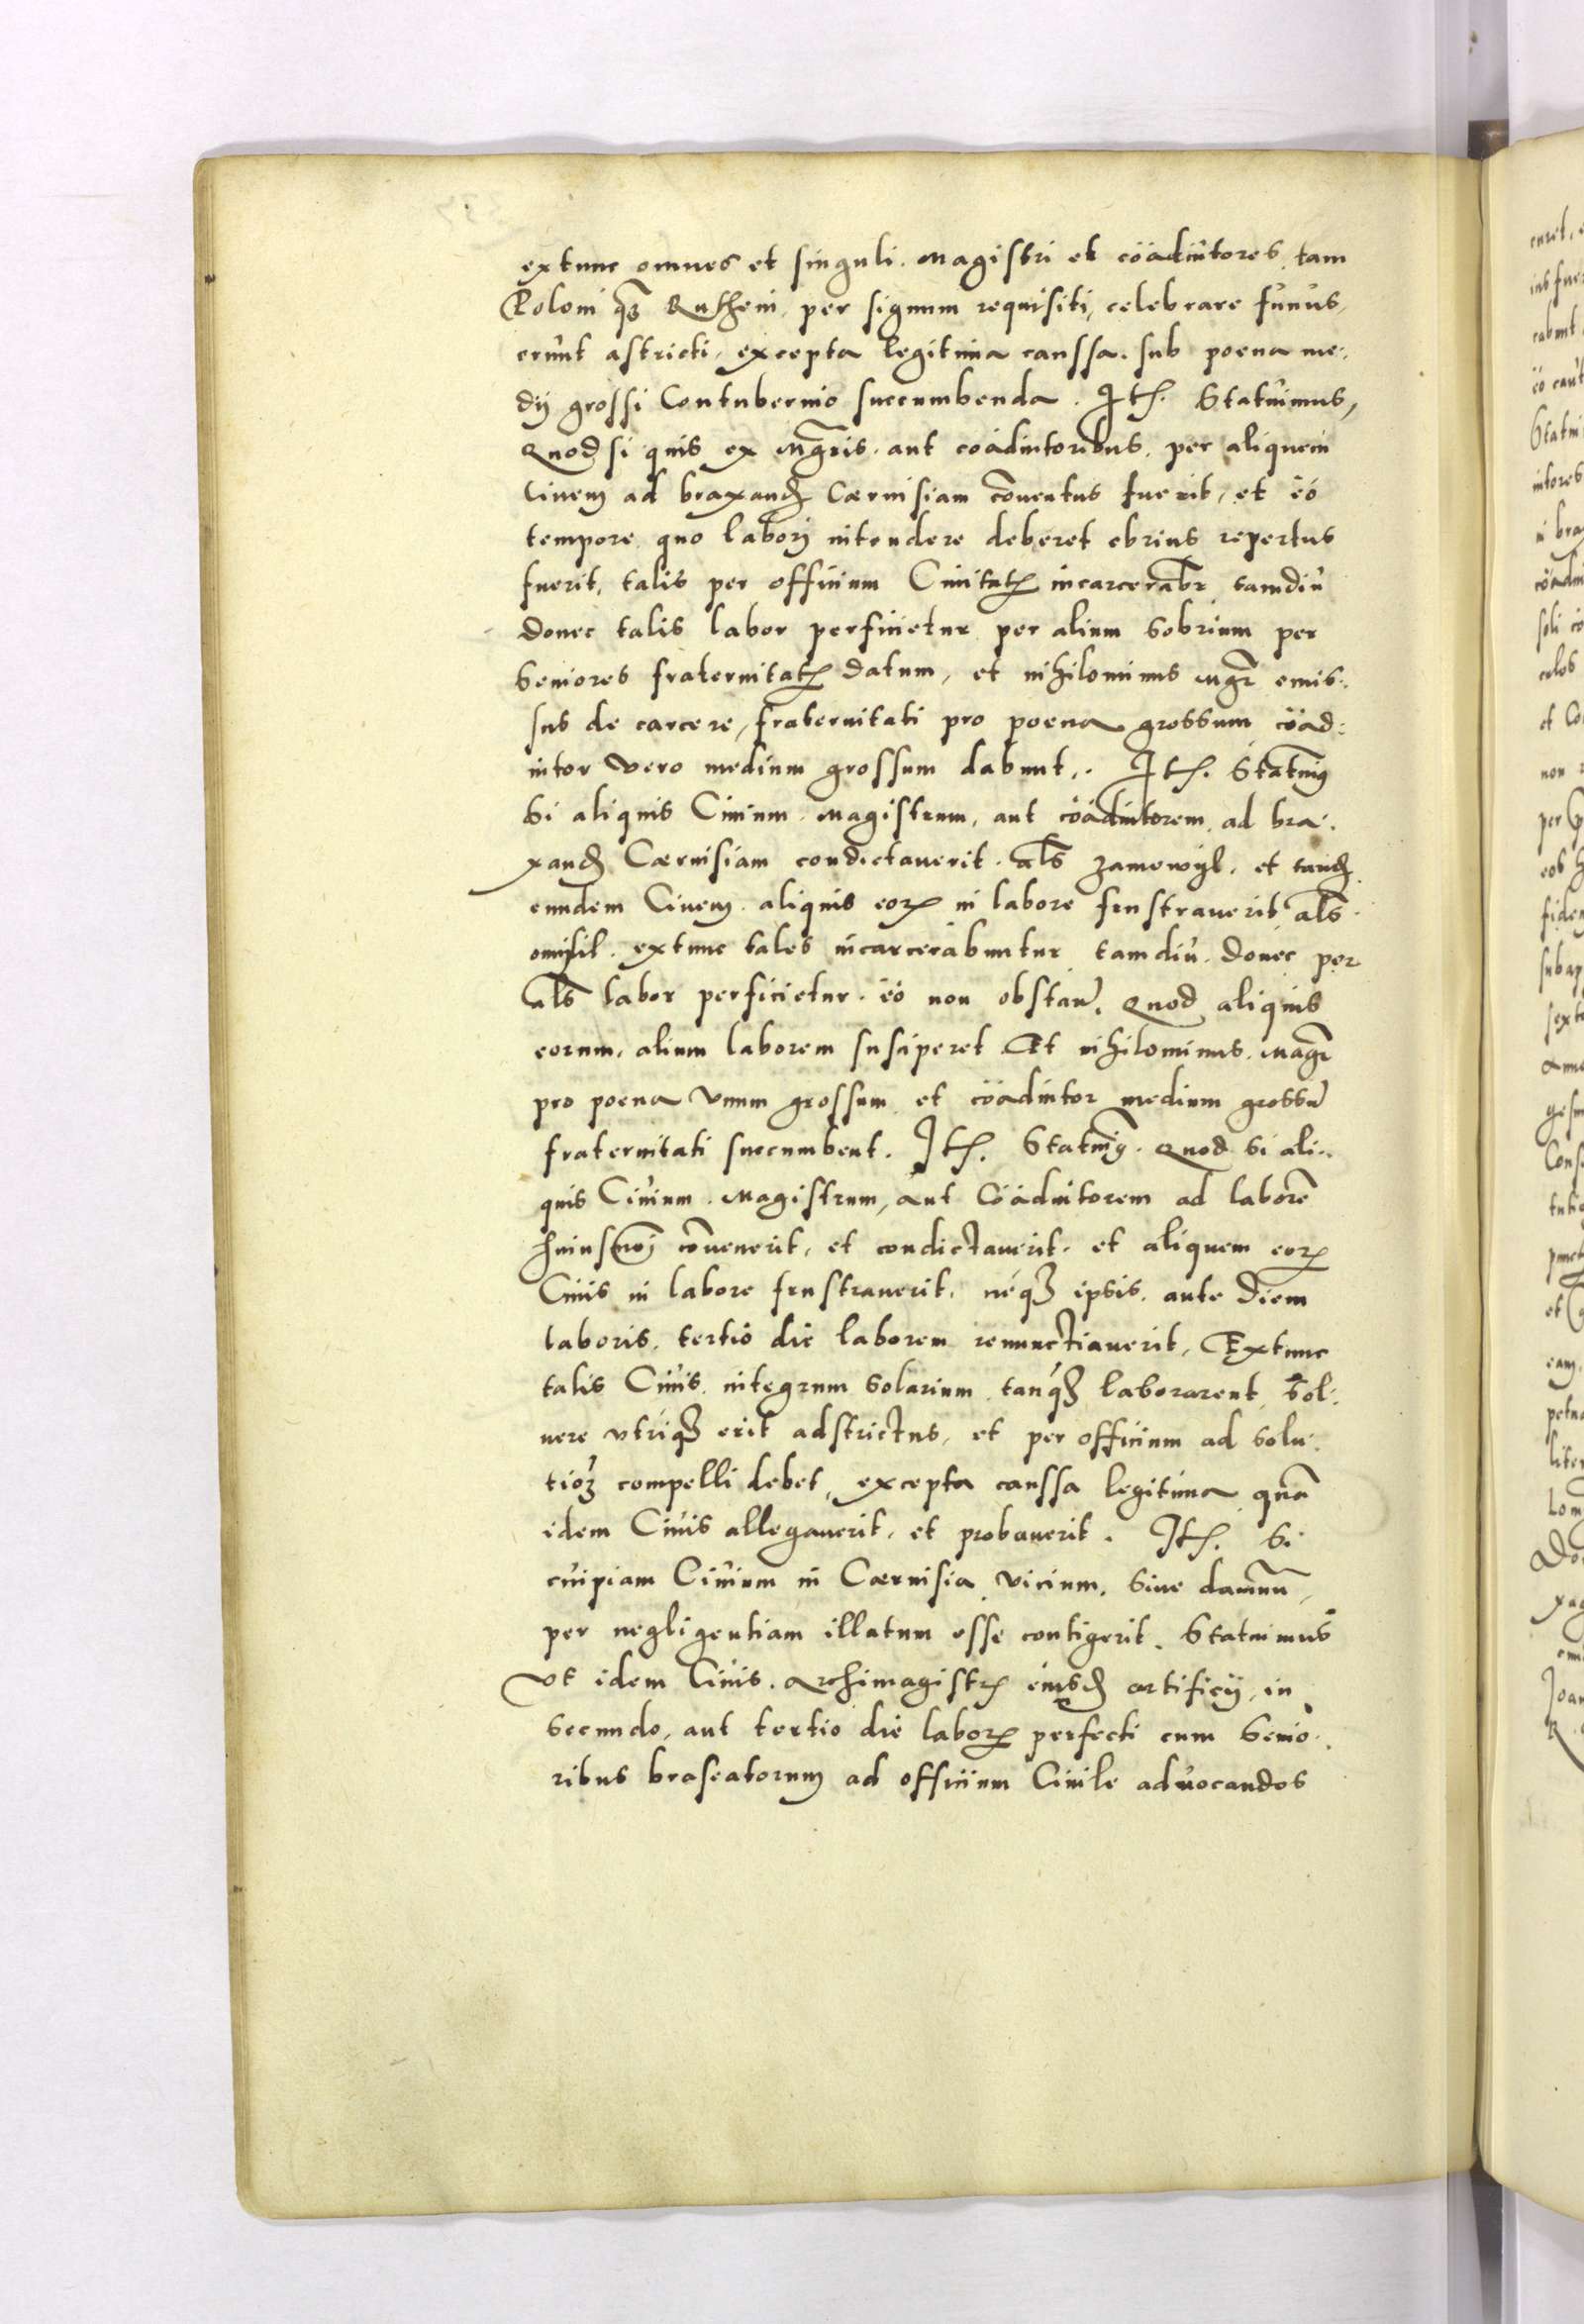 extunc omnes et singuli. Magistri et cöädiutores, tam
Poloni qȝ Rutheni, per signum requisiti, celebrare funus,
erunt astricti, excepta legitima caussa. sub poena me:
dij grossi Contubernio succumbenda. Itꝫ. Statuimus,
Quod si quis ex Mg̃ris. aut coadiutoribus, per aliquem
Ciuem ad braxand̄ Cæruisiam cōuentus fuerit, et eó
tempore quo labori intendere deberet ebrius repertus
fuerit, talis per officium Ciuitatꝭ incarcerabr̃ tamdiu
donec talis labor perficietur per alium sobrium per
Seniores fraternitatꝭ datum, et nihilominus Mgr̃ emis:
sus de carcere, fraternitati pro poena grossum cöad:
iutor vero medium grossum dabunt. Itꝫ. Statuim9
Si aliquis Ciuium. Magistrum, aut cöadiutorem ad bra:
xand̄ Cæruisiam condictauerit. al̃s zamowyl. et tand̄
eundem Ciuem. aliquis eoꝝ in labore frustrauerit al̃s
omysil. extunc tales incarcerabuntur tamdiu. donec per
al̃s labor perficietur. eó non obstañ. Quod aliquis
eorum, alium laborem susciperet Et nihilominus. Magr̃
pro poena vnum grossum et cöadiutor medium grossũ
fraternitati succumbent. Itꝫ. Statuim9. Quod si ali:
quis Ciuium. Magistrum, aut Cöadiutorem ad laborẽ
huiusmoi cõuenerit, et condictauerit. et aliquem eoꝝ
Ciuis in labore frustrauerit, neqȝ ipsis. ante diem
laboris. tertio die laborem renunctiauerit, Extunc
talis Ciuis. integrum solarium tanqȝ laborarent, Sol:
uere vtriqȝ erit adstrictus, et per officium ad solu:
tioȝ compelli debet, excepta caussa legitima quã
idem Ciuis allegauerit, et probauerit. Itꝫ. Si
cuipiam Ciuium in Cæruisia vicium, siue damnũ,
per negligentiam illatum esse contigerit. Statuimus
Vt idem Ciuis. Archimagistꝝ eiusd̄ artificij, in
secundo, aut tertio die laboꝝ perfecti cum Senio:
ribus braseatorum ad officium Ciuile aduocandos